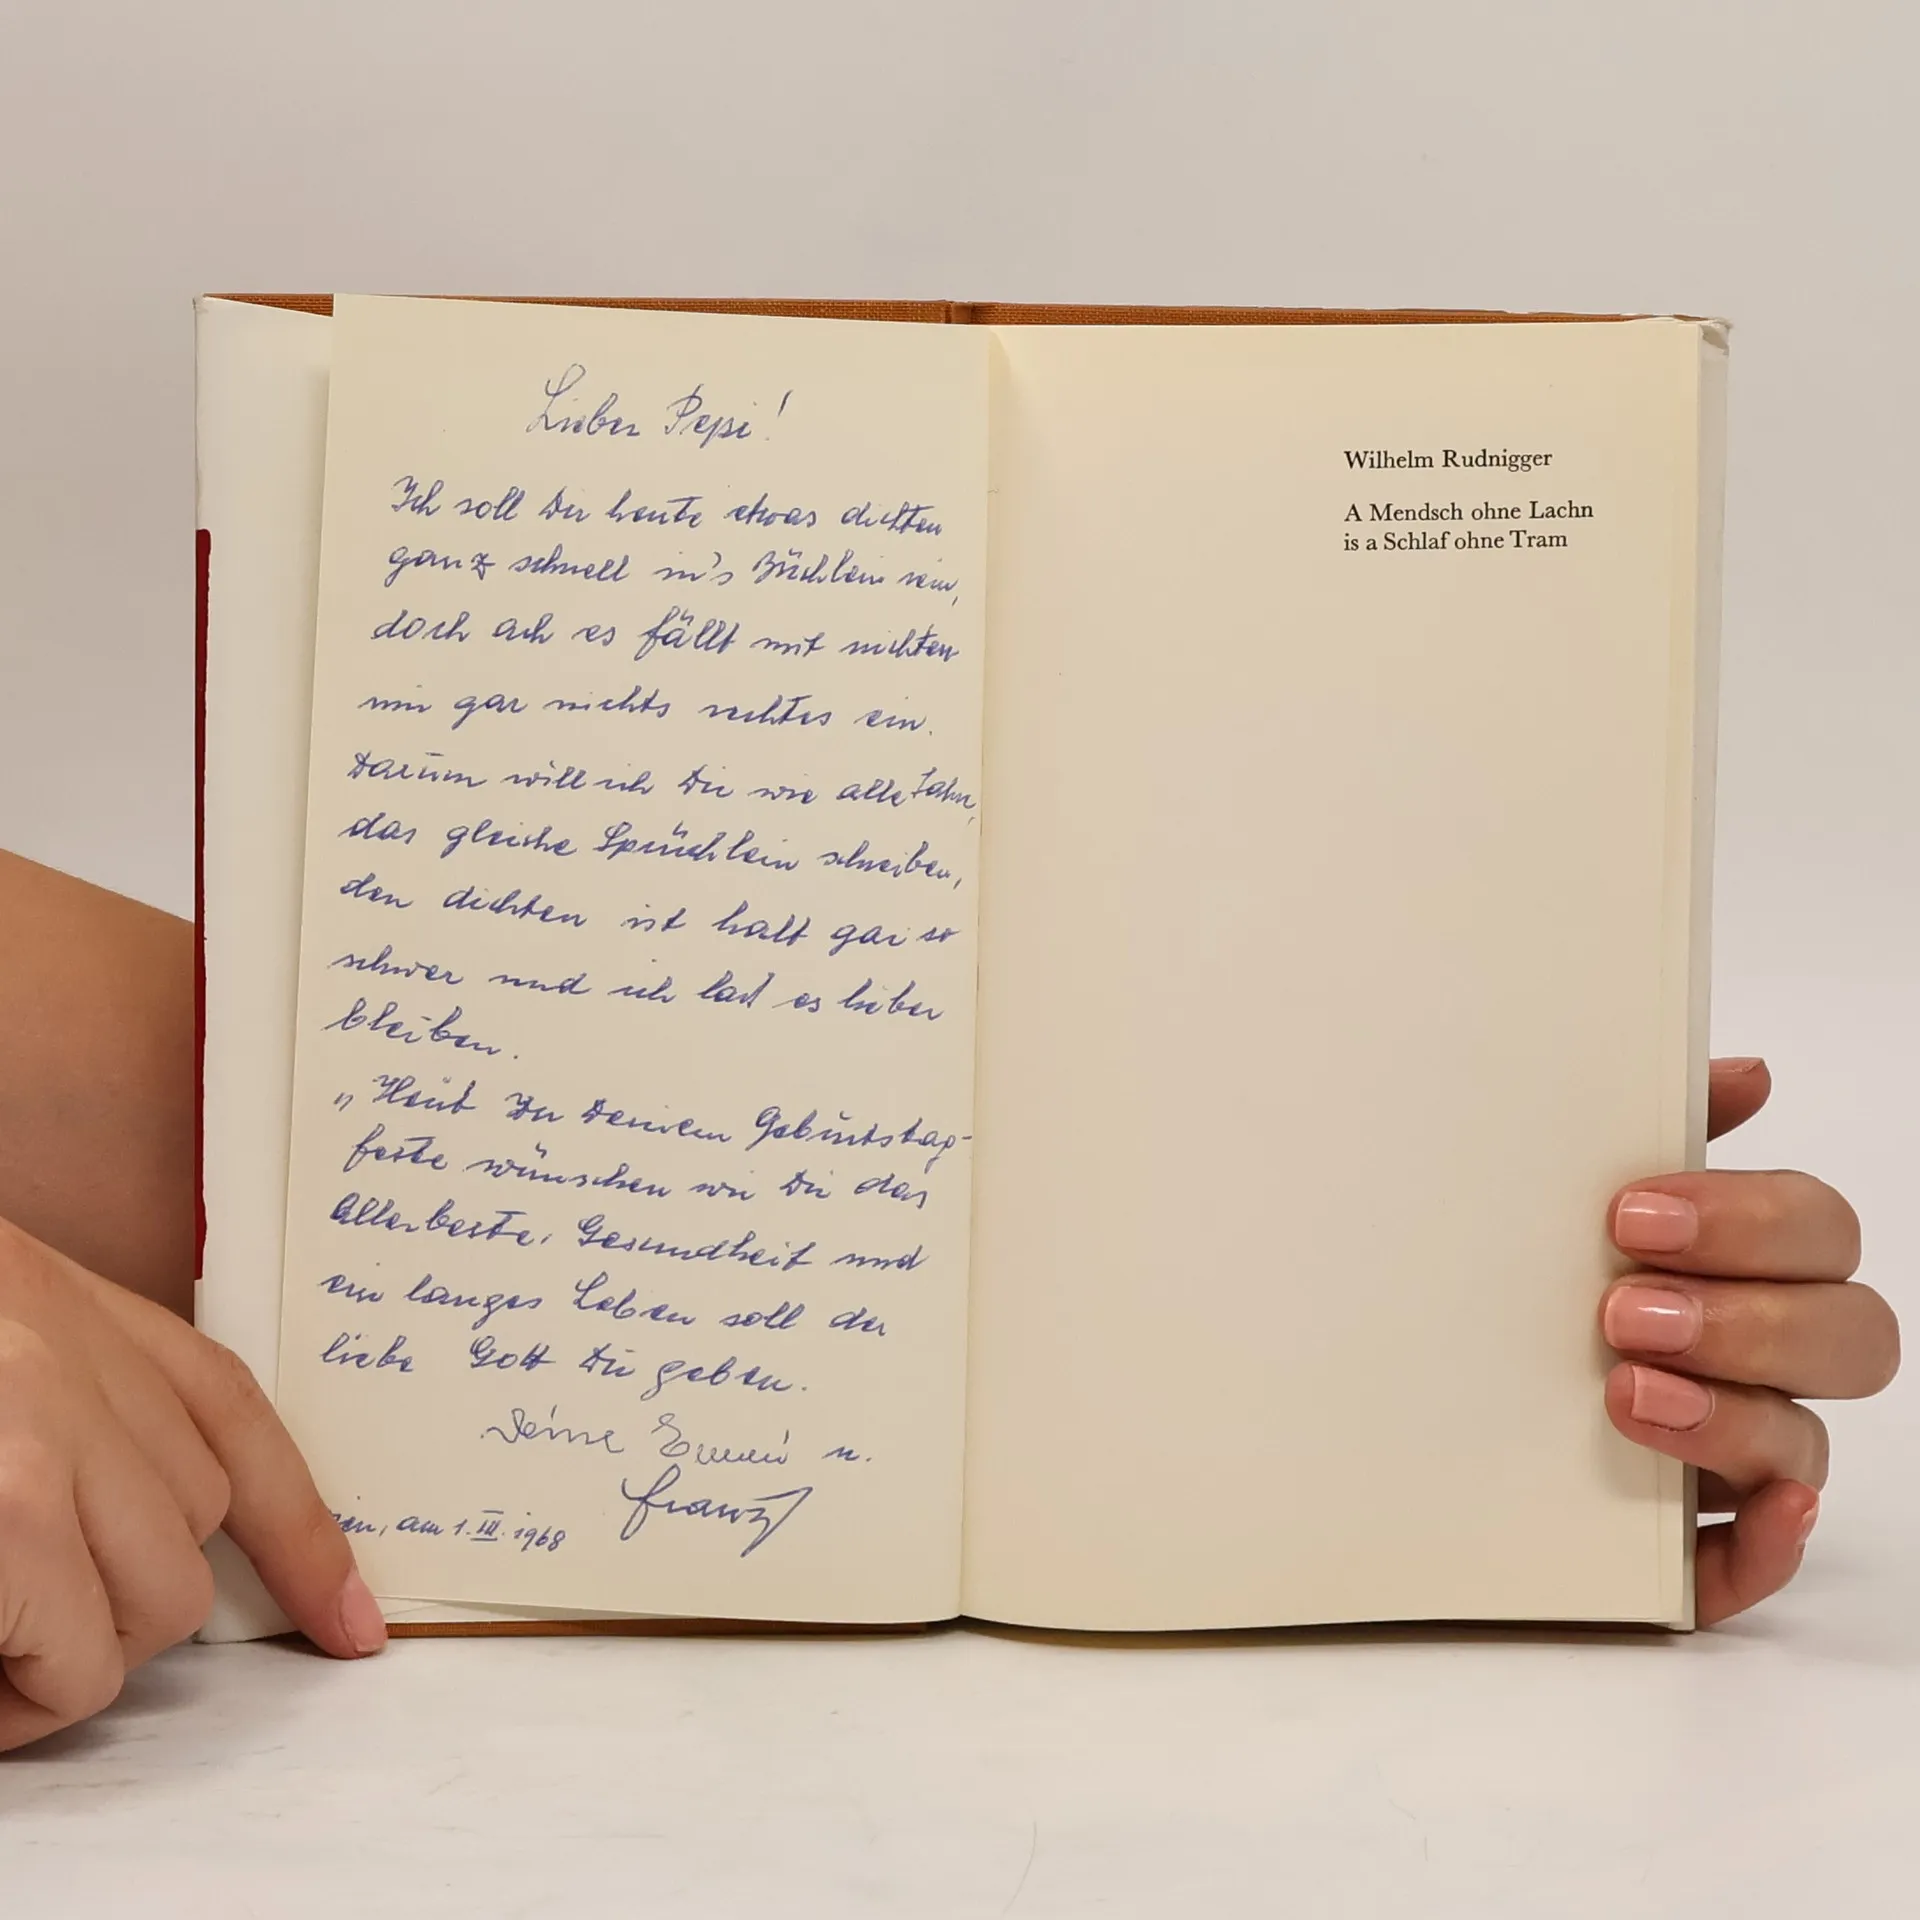 Lieber Pepi!
Ich soll Dir heute etwas dichten
ganz schnell in's Büchlein rein,
doch ach es fällt mit nichten
mir gar nichts rechtes ein.
Darum will ich Dir wie alle Jahr,
das gleiche Sprüchlein schreiben,
den dichten ist halt gar so
schwer und ich laß es lieber
bleiben.
"Heut zu Deinem Geburtstag-
feste wünschen wir Dir das
Allerbeste, Gesundheit und
ein langes Leben soll der
liebe Gott Dir geben.
Deine Emmi u.
Franz
am 1. III. 1968
Wilhelm Rudnigger
A Mendsch ohne Lachn
is a Schlaf ohne Tram